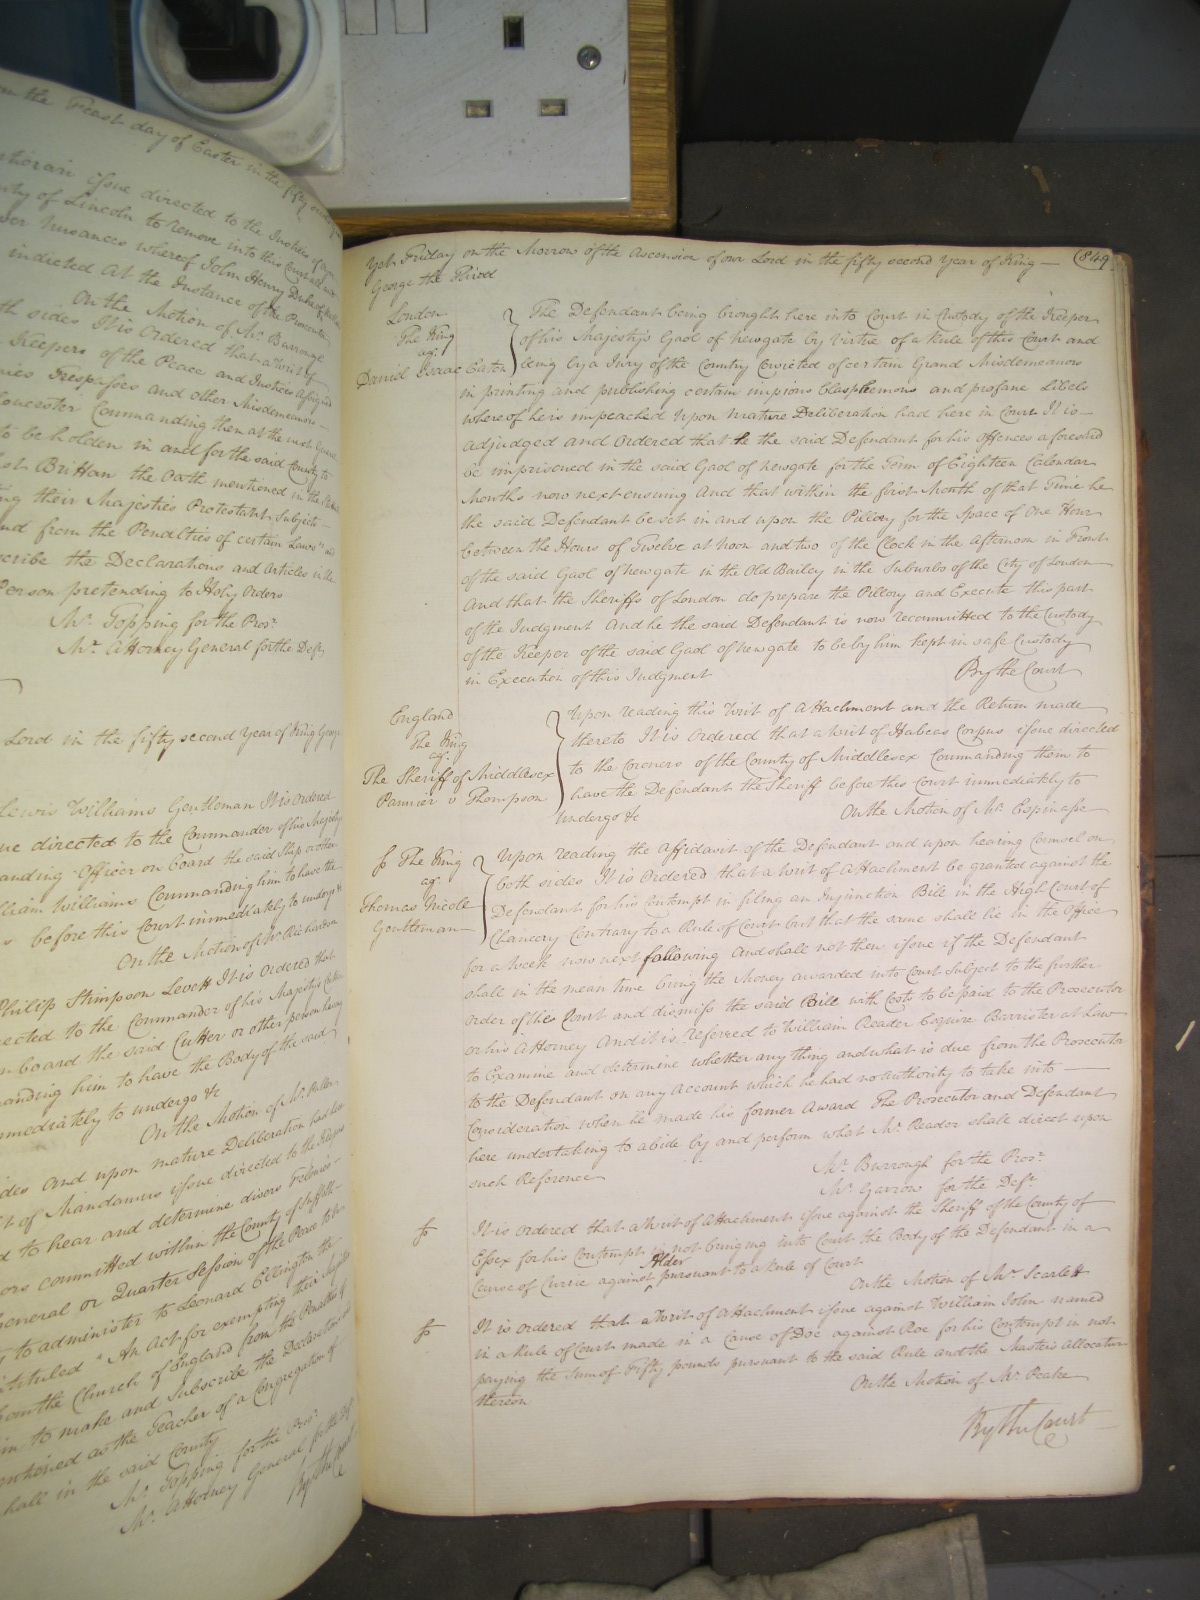 on the Feast day of Easter in the fifty second
issue directed to the Justices of
of Lincoln to remove into this Court all
Nusances whereof John Henry Duke of
indicted At the Instance of the Prosecutor
On the Motion of Mr. Barrow
sides It is Ordered that a Writ of
Keepers of the Peace and Justices Assigned
Trespasses and other Misdemeanors
Commanding them at the next
to be holden in and for the said County to
Brittan the Oath mentioned in the
their Majesties Protestant Subjects
from the Penalties of certain Laws" and
the Declarations and Articles in the
Person pretending to Holy Orders
Mr. Topping for the Prosr.
Mr. Attorney General for the Deft.
Lord in the fifty second Year of King George
Lewis Williams Gentleman It is Ordered
directed to the Commander of his Majestys
Officer on board the said Ship or other
William Williams Commanding him to have the
before this Court immediately to undergo &c
On the Motion of Mr. Richardson
Philip Stimpson Levett It is Ordered that
directed to the Commander of his Majestys Cutter
on board the said Cutter or other person having
him to have the Body of the said
immediately to undergo &c
On the Motion of Mr.
sides and upon mature Deliberation had here
of Mandamus issue directed to the Keepers
to hear and determine divers Felonies
committed within the County of Suffolk
General or Quarter Session of the Peace to be
to administer to Leonard Ellington the
intituled "An Act for exempting their Majesties
from the Church of England from the Penalties of
to make and Subscribe the Declarations
as the Teacher of a Congregation of
in the said County
Mr. Topping for the Prosr.
Mr. Attorney General for the Deft.
By the Court
Yet Friday on the Morrow of the Ascension of our Lord in the fifty second Year of King — 849
George the Third
London
The King
agt.
Daniel Isaac Eaton
The Defendant being brought here into Court in Custody of the Keeper
of his Majesty's Gaol of Newgate by Virtue of a Rule of this Court and
being by a Jury of the Country Convicted of certain Grand Misdemeanors
in printing and publishing certain impious Blasphemous and profane Libels
whereof he is impeached Upon Mature Deliberation had here in Court It is
adjudged and Ordered that he the said Defendant for his Offences aforesaid
be imprisoned in the said Gaol of Newgate for the Term of Eighteen Calendar
Months now next ensuing And that within the first Month of that Time he
the said Defendant be set in and upon the Pillory for the Space of One Hour
between the Hours of Twelve at Noon and two of the Clock in the Afternoon in Front
of the said Gaol of Newgate in the Old Bailey in the Suburbs of the City of London
And that the Sheriffs of London do prepare the Pillory and Execute this part
of the Judgment And he the said Defendant is now recommitted to the Custody
of the Keeper of the said Gaol of Newgate to be by him kept in safe Custody
in Execution of this Judgment
By the Court
England
The King
agt.
The Sheriff of Middlesex
Parmier v Thompson
Upon reading this Writ of Attachment and the Return made
thereto It is Ordered that a Writ of Habeas Corpus issue directed
to the Coroners of the County of Middlesex Commanding them to
have the Defendant the Sheriff before this Court immediately to
undergo &c
On the Motion of Mr. Espinasse
The King
agt.
Thomas Nicole
Gentleman
Upon reading the Affidavit of the Defendant and upon hearing Counsel on
both sides It is Ordered that a Writ of Attachment be granted against the
Defendant for his Contempt in filing an Injunction Bill in the High Court of
Chancery Contrary to a Rule of Court but that the same shall lie in the Office
for a Week now next following And shall not then issue if the Defendant
shall in the mean time bring the Money awarded into Court Subject to the further
order of this Court and dismiss the said Bill with Costs to be paid to the Prosecutor
or his Attorney And it is Referred to William Reader Esquire Barrister at Law
to Examine and determine whether any thing and what is due from the Prosecutor
to the Defendant on any Account which he had no authority to take into
Consideration when he made his former Award The Prosecutor and Defendant
here undertaking to abide by and perform what Mr. Reader shall direct upon
such Reference
Mr. Burrough for the Prosr.
Mr. Garrow for the Deft.
It is Ordered that a Writ of Attachment issue against the Sheriff of the County of
Essex for his Contempt in not bringing into Court the Body of the Defendant in a
Cause of Currie against Alder pursuant to a Rule of Court
On the Motion of Mr. Scarlett
It is Ordered that a Writ of Attachment issue against William John named
in a Rule of Court made in a Cause of Doe against Roe for his Contempt in not
paying the Sum of Fifty pounds pursuant to the said Rule and the Masters Allocatur
thereon
On the Motion of Mr. Peake
By the Court